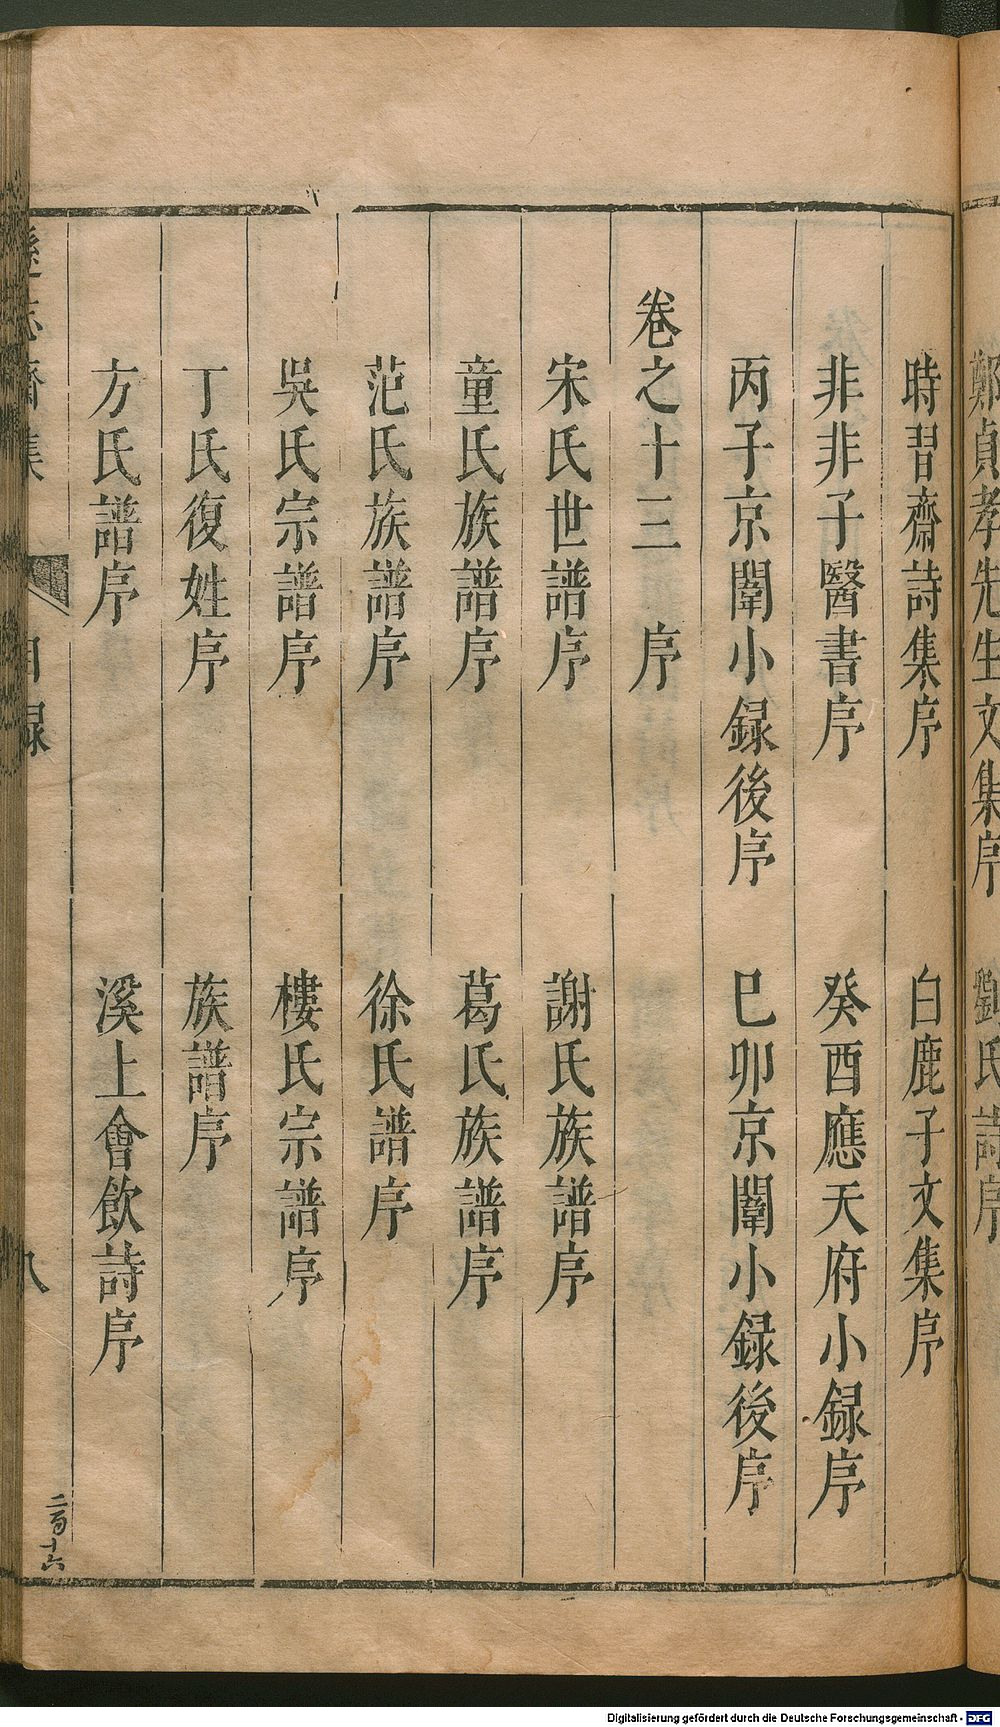 鄭貞孝先生文集序　劉氏詩序
時習齋詩集序　白鹿子文集序
非非子醫書序　癸酉應天府小録序
丙子京闈小録後序　巳卯京闈小録後序
卷之十三　序
宋氏世譜序　謝氏族譜序
童氏族譜序　葛氏族譜序
范氏族譜序　徐氏譜序
吳氏宗譜序　樓氏宗譜序
丁氏復姓序　族譜序
方氏譜序　溪上會飲詩序
遜志齋集　目録　八
二百十六
Digitalisierung gefördert durch die Deutsche Forschungsgemeinschaft - DFG